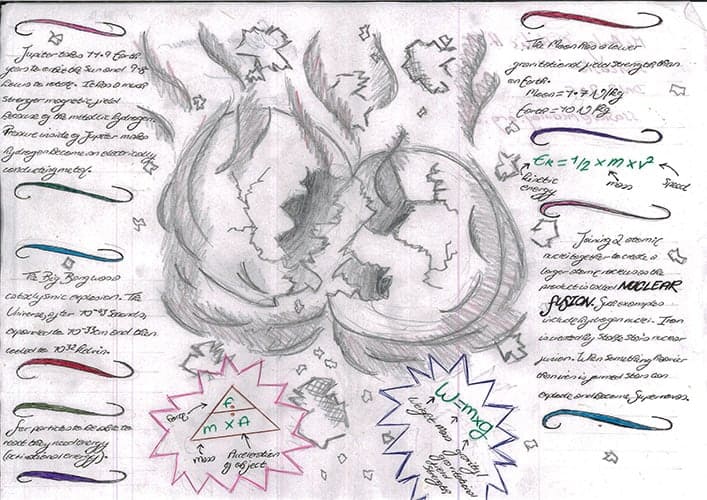 Jupiter takes 11.9 Earth
years to orbit the Sun and 9.8
hours to rotate. It has a much
stronger magnetic field
because of the metallic hydrogen.
Pressure inside of Jupiter makes
hydrogen become an electrically
conducting metal.
The Big Bang was a
cataclysmic explosion. The
Universe, after 10⁻⁴³ seconds,
expanded to 10⁻³³cm and then
cooled to 10³² Kelvin.
For particles to be able to
react they need energy
(activational energy).
Force
F
m x A
mass
Acceleration
of object
The Moon has a lower
gravitational field strength than
on Earth.
Moon = 1.7 N/kg
Earth = 10 N/kg
EK = 1/2 x m x v²
kinetic
energy
mass
speed
Joining 2 atomic
nuclei together to create a
larger atomic nucleus as the
product is called NUCLEAR
FUSION.
include hydrogen nuclei. Iron
is
When something heavier
than iron is joined stars can
explode and become Supernovas.
W=mxg
weight
mass
gravity/
gravitational
field
strength